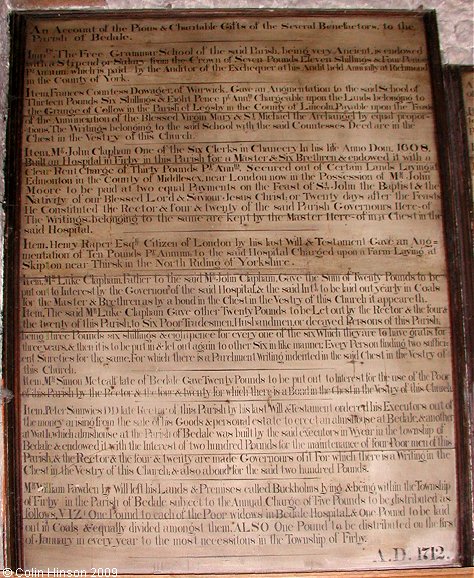 An Account of the Pious & Charitable Gifts of the Several Benefactors, to the
Parish of Bedale.
Imprs. The Free Grammar School of the said Parish, being very Ancient, is endowed
with a Stipend or Salary from the Crown of Seven Pounds Eleven Shillings & Four Pence
Pr. Annum which is paid by the Auditor of the Exchequer at his Audit held Annually at Richmond
in the County of York.
Item, Frances Countess Dowager, of Warwick, Gave an Augmentation to the said School of
Thirteen Pounds Six Shillings & Eight Pence pr. Annm. Chargeable upon the Lands belonging to
the Grange of Collow in the Parish of Legsby in the County of Lincoln, Payable upon the Feasts
of the Annunciation of the Blessed Virgin Mary & St. Michael the Archangel by equal propor-
tions, The Writings belonging to the said School with the said Countesses Deed are in the
Chest in the Vestry of this Church.
Item, Mr. John Clapham One of the Six Clerks in Chancery In his life Anno Dom. 1608,
Built an Hospital in Firby in this Parish for a Master & Six Brethren & endowed it with a
Clear Rent Charge of Thirty Pounds Pr. Annm. Secured out of Certain Lands Laying at
Edmonton in the County of Middlesex, near London now in the Possession of Mr. John
Moore to be paid at two equal Payments on the Feast of St. John the Baptist & the
Nativity of our Blessed Lord & Saviour Jesus Christ, or Twenty days after the Feasts
He Constituted the Rector & four & twenty of the said Parish Governours Here-of
The Writings, belonging to the same are kept by the Master Here-of in a Chest in the
said Hospital.
Item, Henry Raper Esqr. Citizen of London by his last Will & Testament Gave an Aug-
mentation of Ten Pounds Pr. Annum, to the said Hospital Charged upon a Farm Laying at
Skipton near Thirsk in the North Riding of Yorkshire.
Item, Mr. Luke Clapham, Father to the said Mr. John Clapham, Gave the Sum of Twenty Pounds to be
put out to Interest by the Governour of the said Hospital, & the said Intt. to be laid out yearly in Coals
for the Master & Brethren as by a bond in the Chest in the Vestry of this Church it appeareth.
Item, The said Mr. Luke Clapham Gave other Twenty Pounds to be Let out by the Rector & the four &
the twenty of this Parish, to Six Poor Tradesmen, Husbandmen, or decayed Persons of this Parish,
being Three Pounds six Shillings & eight pence for every one of the six, Which they are to have gratis for
three years, & then it is to be put in & let out again to other Six in like manner, Every Person finding two suffici-
ent Sureties for the same, For which there is a Parchment Writing indented in the said Chest in the Vestry of
this Church.
Item, Mr. Simon Metcalf late of Bedale Gave Twenty Pounds to be put out to Interest for the use of the Poor
of this Parish by the Rector & the four & twenty for which there is a Bond in the Chest in the Vestry of this Church
Item, Peter Samwies D.D late Rector of this Parish by his last Will & Testament ordered his Executors out of
the money arising from the sale of his Goods & personal estate to erect an almshouse at Bedale, & another
at Wath, which almshouse at the Parish of Bedale was built by the said executors in Wycar in the township of
Bedale & endowed it with the interest of two hundred Pounds for the maintenance of four Poor men of this
Parish & the Rector & the four & twenty are made Governours of it For which there is a Writing in the
Chest in the Vestry of this Church & also a bond for the said two hundred Pounds.
Mr. William Fawden by Will left his Lands & Premises called Buckholms lying & being within the Township
of Firby in the Parish of Bedale subject to the Annual Charge of Five Pounds to be distributed as
follows, VIZt. One Pound to each of the Poor widows in Bedale Hospital, & One Pound to be laid
out in Coals & equally divided amongst them. ALSO One Pound to be distributed on the first
of January in every year to the most necessitous in the Township of Firby.
A.D. 1712.
© Colin Hinson 2009